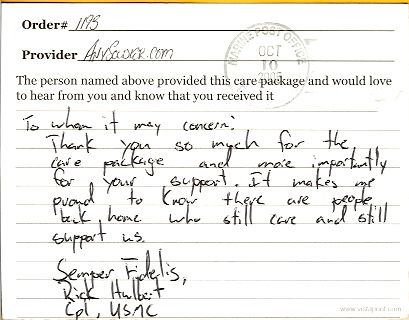 Order# 1193
Provider AnySoldier.com
MARINE POST OFFICE
OCT
10
The person named above provided this care package and would love
to hear from you and know that you received it
To whom it may concern:
Thank you so much for the
care package and more importantly
for your support. It makes me
proud to know there are people
back home who still care and still
support us.
Semper Fidelis,
Rick Hulbert
Cpl, USMC
www.vistaprint.com